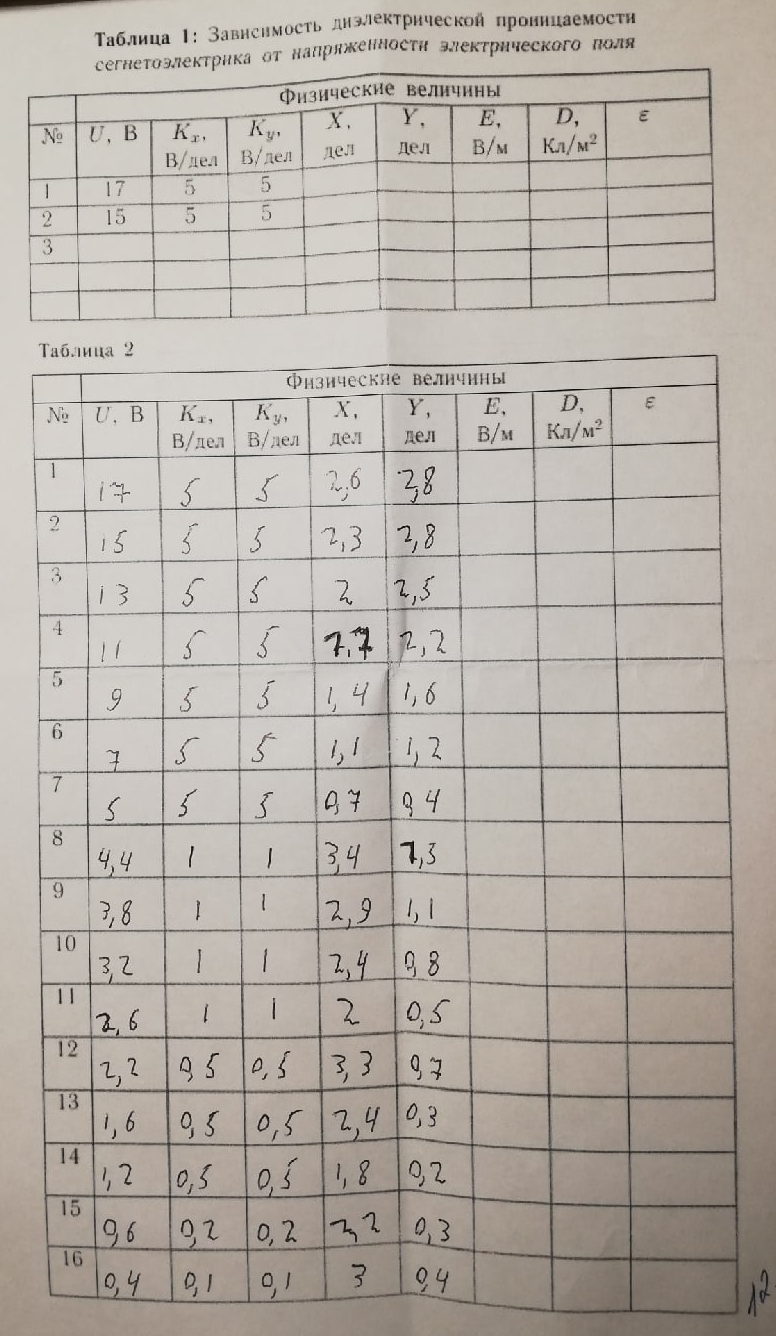 Таблица 1: Зависимость диэлектрической проницаемости
сегнетоэлектрика от напряженности электрического поля
Физические величины
№ U, В Kx, В/дел Ky, В/дел X, дел Y, дел E, В/м D, Кл/м² ε
1 17 5 5
2 15 5 5
3
Таблица 2
Физические величины
№ U, В Kx, В/дел Ky, В/дел X, дел Y, дел E, В/м D, Кл/м² ε
1 17 5 5 2,6 2,8
2 15 5 5 2,3 2,8
3 13 5 5 2 2,5
4 11 5 5 1,7 2,2
5 9 5 5 1,4 1,6
6 7 5 5 1,1 1,2
7 5 5 5 0,7 0,4
8 4,4 1 1 3,4 1,3
9 3,8 1 1 2,9 1,1
10 3,2 1 1 2,4 0,8
11 2,6 1 1 2 0,5
12 2,2 0,5 0,5 3,3 0,7
13 1,6 0,5 0,5 2,4 0,3
14 1,2 0,5 0,5 1,8 0,2
15 0,6 0,2 0,2 2,2 0,3
16 0,4 0,1 0,1 3 0,4
12